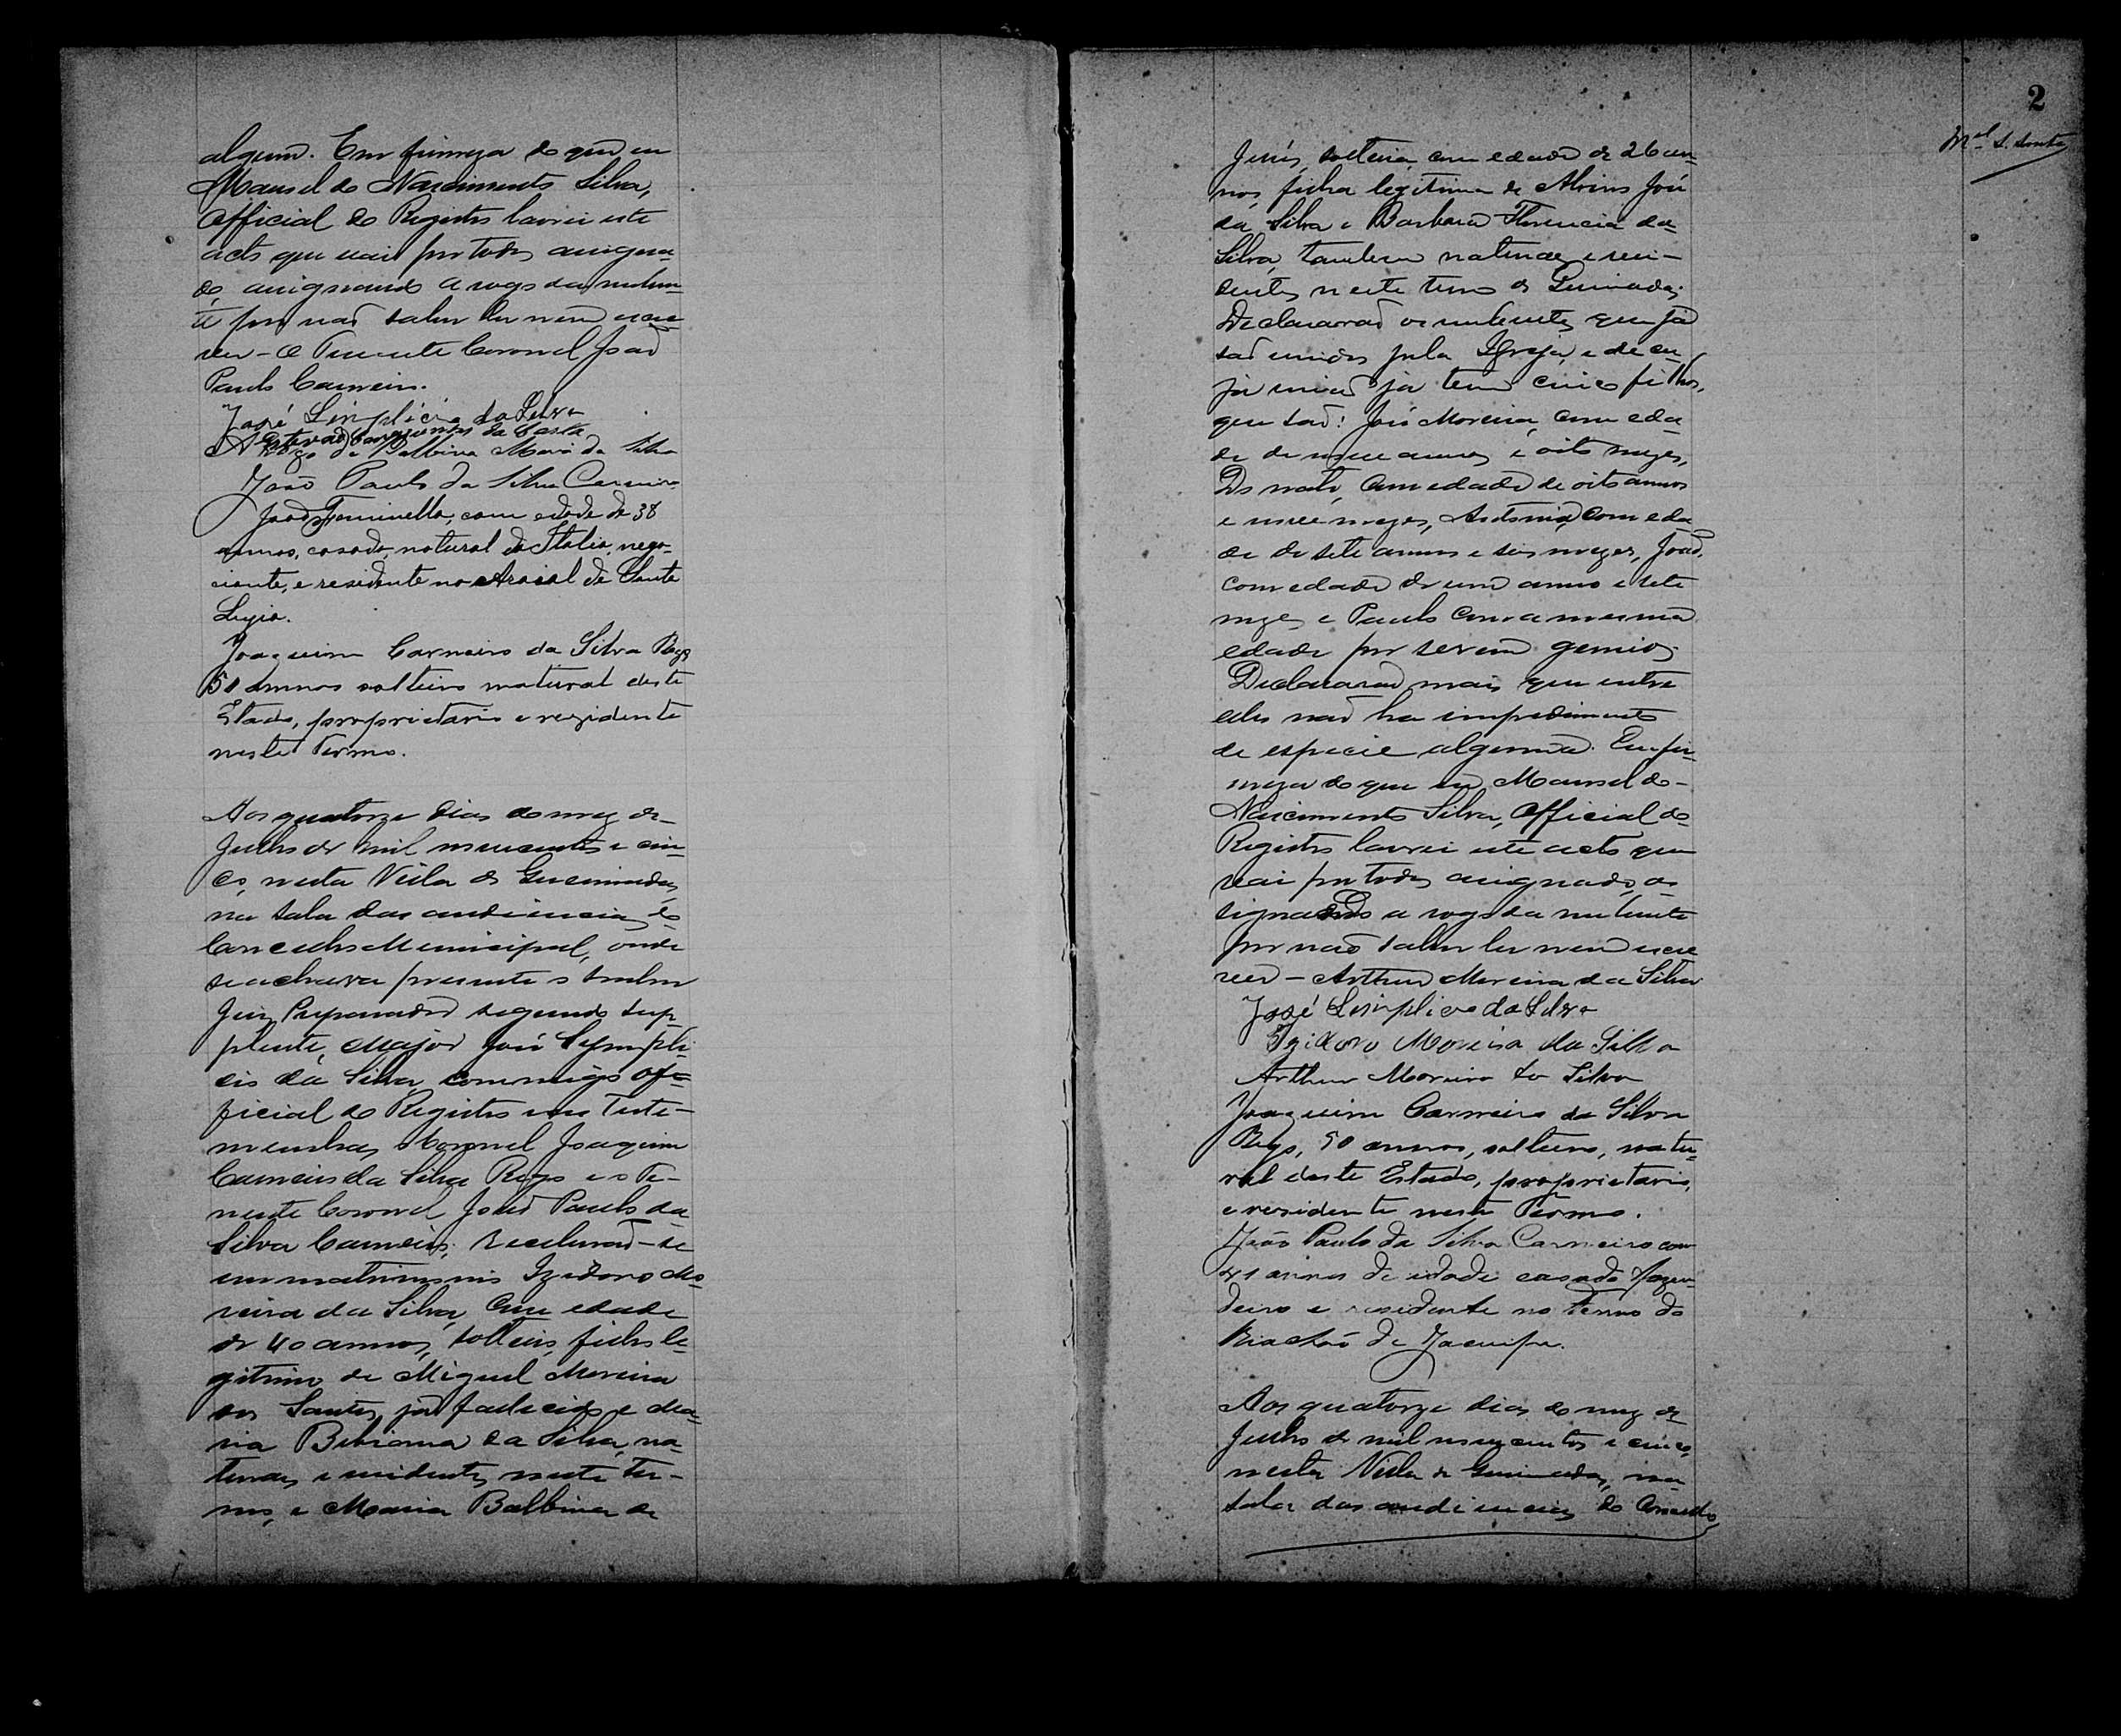 algum. Em firmeza do que eu
Manoel do Nascimento Silva,
Official do Registro lavrei este
acto que vai por todos assigna-
do, assignando a rogo da nuben-
te por não saber ler nem escre-
ver - O Tenente Coronel João
Paulo Carneiro.
José Simplicio da Silva
Estevão da Costa
A Rogo de Balbina Maria da Silva
João Paulo da Silva Carneiro
João, com edade de 38
annos, casado, natural da Italia, nego-
ciante, e residente no Arraial de Santa
Luzia.
Joaquim Carneiro da Silva Rego
50 annos solteiro natural deste
Estado, proprietario e rezidente
neste Termo.
Aos quatorze dias do mez de
Julho de mil novecentos e cin-
co, nesta Villa de Queimadas,
na sala das audiencias do
Concelho Municipal, onde
se achava presente o senhor
Juiz Preparador segundo sup-
plente, Major José Sympli-
cio da Silva, commigo Of-
ficial do Registro e as teste-
munhas, Coronel Joaquim
Carneiro da Silva Rego e o Te-
nente Coronel João Paulo da
Silva Carneiro; Receberão-se
em matrimonio Izidoro Mo-
reira da Silva, com edade
de 40 annos, solteiro, filho le-
gitimo de Miguel Moreira
dos Santos, já fallecido e Ma-
ria Bibiana da Silva, na-
turaes e residentes neste ter-
mo, e Maria Balbina de
2
Mel S. Santos
Jesus, solteira, com edade de 26 an-
nos, filha legitima de Alvino José
da Silva e Barbara Florencia da
Silva, tambem naturaes e resi-
dentes neste termo de Queimadas;
Declararão os nubentes que já
são unidos pela Igreja, e de cu-
ja união já tem cinco filhos,
que são: José Moreira, com eda-
de de nove annos e oito mezes,
Donato, com edade de oito annos
e nove mezes, Antonia, com eda
de de sete annos e seis mezes, João,
com edade de um anno e sete
mezes e Paulo com a mesma
edade por serem gemios.
Declararão mais que entre
elles não ha impedimento
de especie alguma. Em fir-
meza do que eu Manoel do
Nascimento Silva, Official do
Registro lavrei este acto que
vai por todos assignado, as
signando a rogo da nubente
por não saber ler nem escre
ver - Arthur Moreira da Silva
José Simplicio da Silva
Izidoro Moreira da Silva
Arthur Moreira da Silva
Joaquim Carneiro da Silva
Rego, 50 annos, solteiro, natu-
ral deste Estado, proprietario,
e residente neste Termo.
João Paulo da Silva Carneiro com
41 annos de idade casado fazen-
deiro e residente no Termo do
Riachão de Jacuipe.
Aos quatorze dias do mez de
Julho de mil novecentos e cinco,
nesta Villa de Queimadas, na
sala das audiencias do Concelho